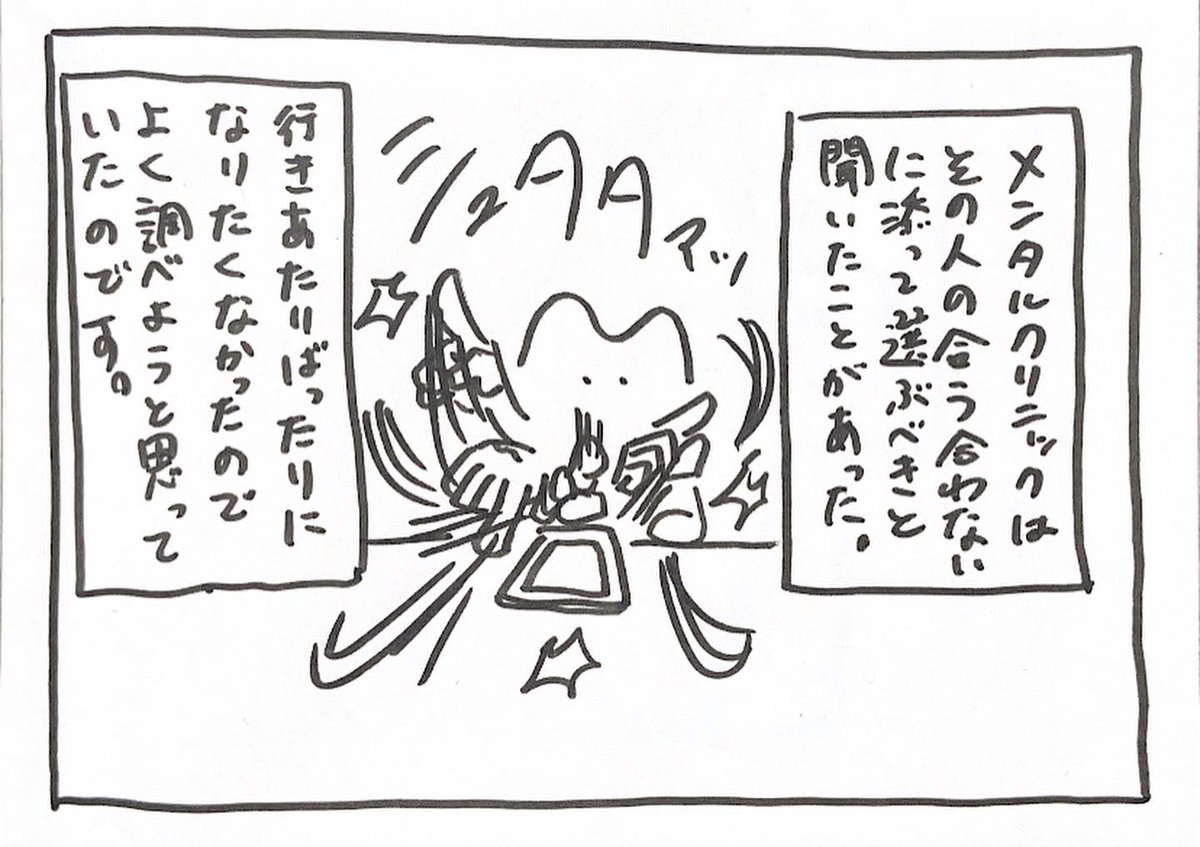 メンタルクリニックは
その人の合う合わない
に添って選ぶべきと
聞いたことがあった。
シュタタアッ
行きあたりばったりに
なりたくなかったので
よく調べようと思って
いたのです。